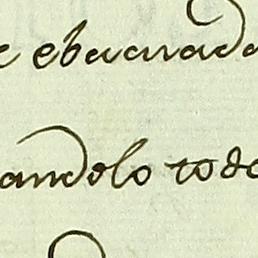 ebacuada
andolo todo